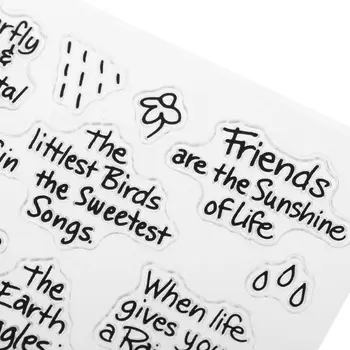 &
The
littlest Birds
the Sweetest
Songs.
Friends
are the Sunshine
of life
the
Earth
When life
gives you
a